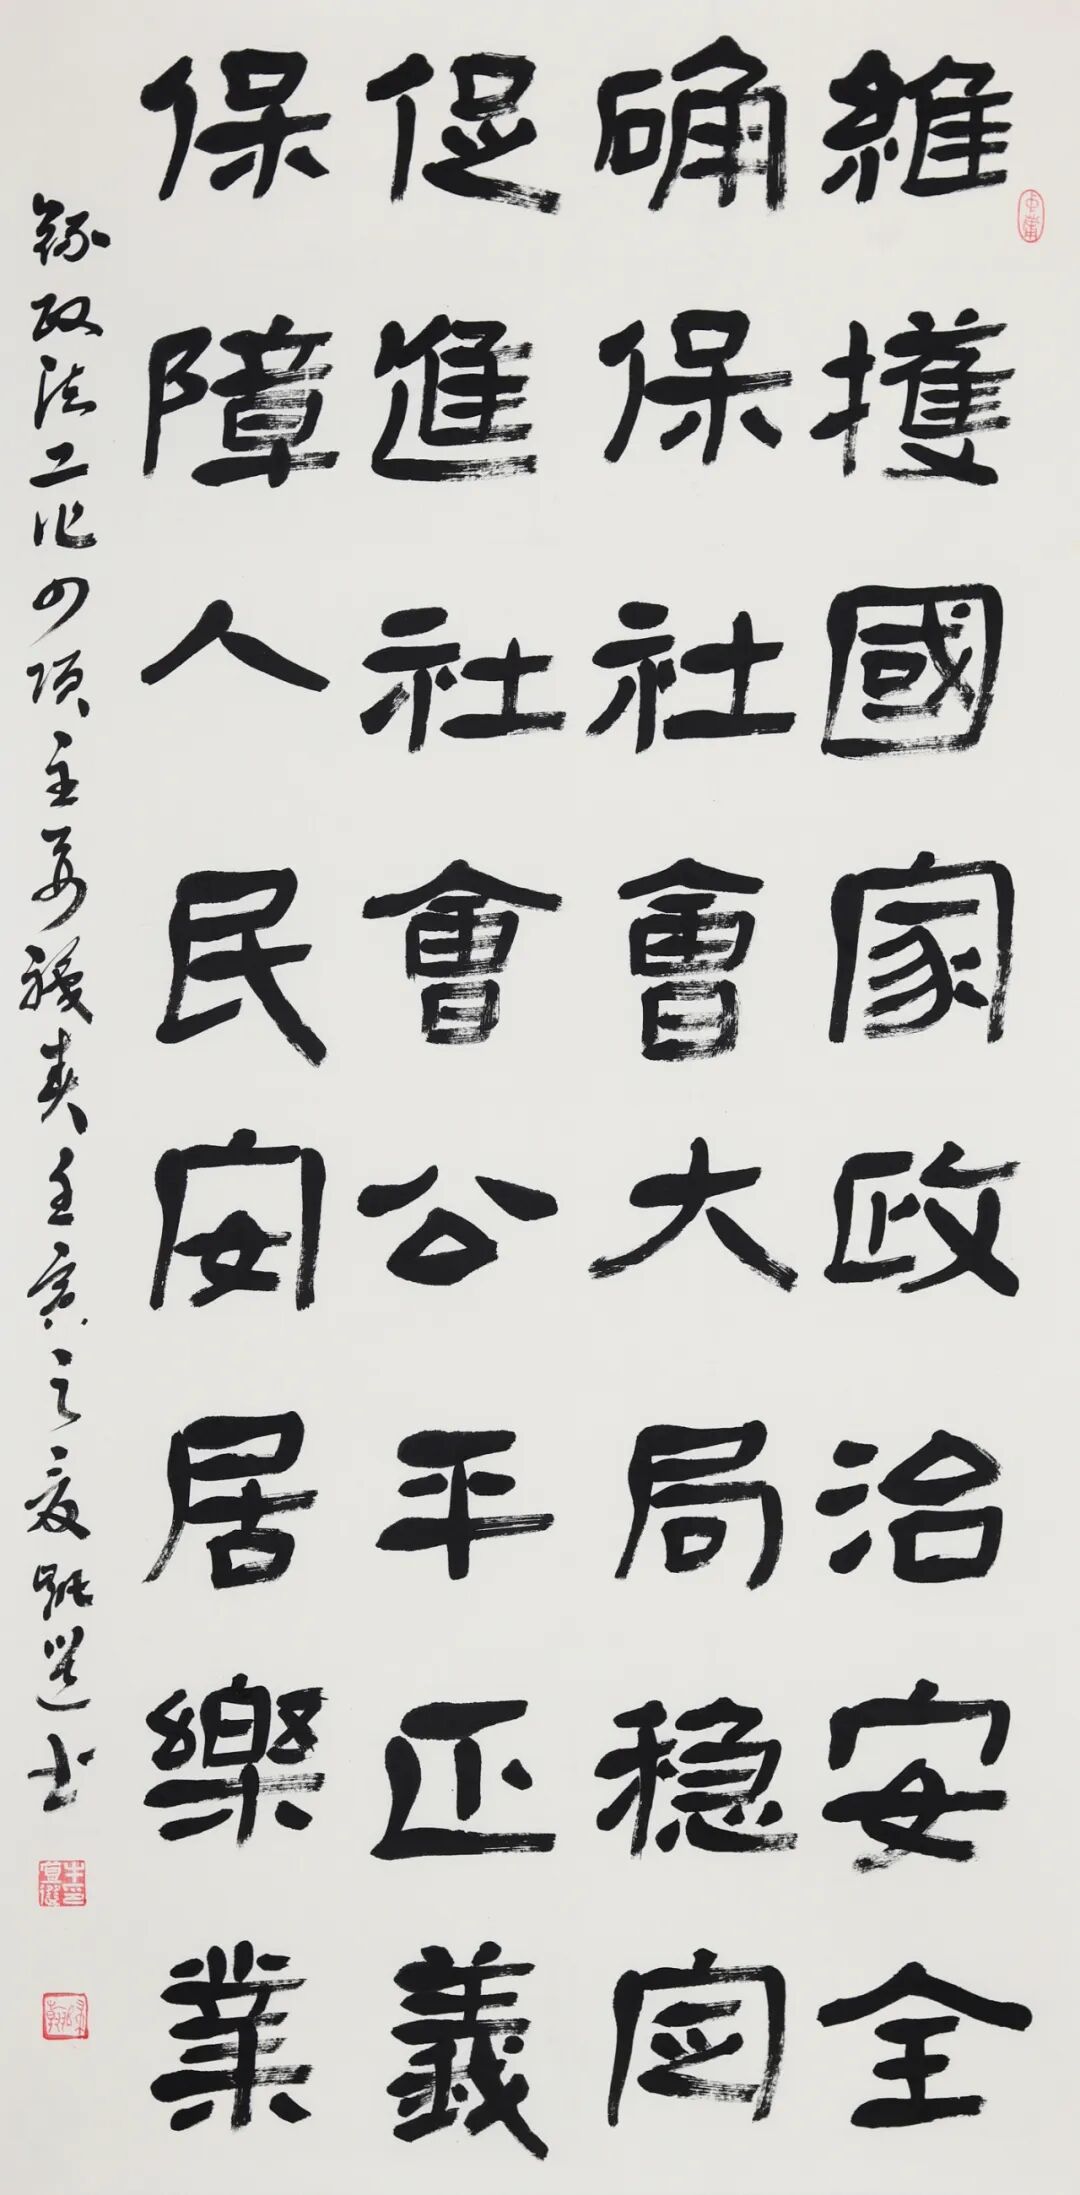 維擭國家政治安全
确保社會大局稳定
促進社會公平正義
保障人民安居樂業
錄政法工作四项主要職责壬寅之夏